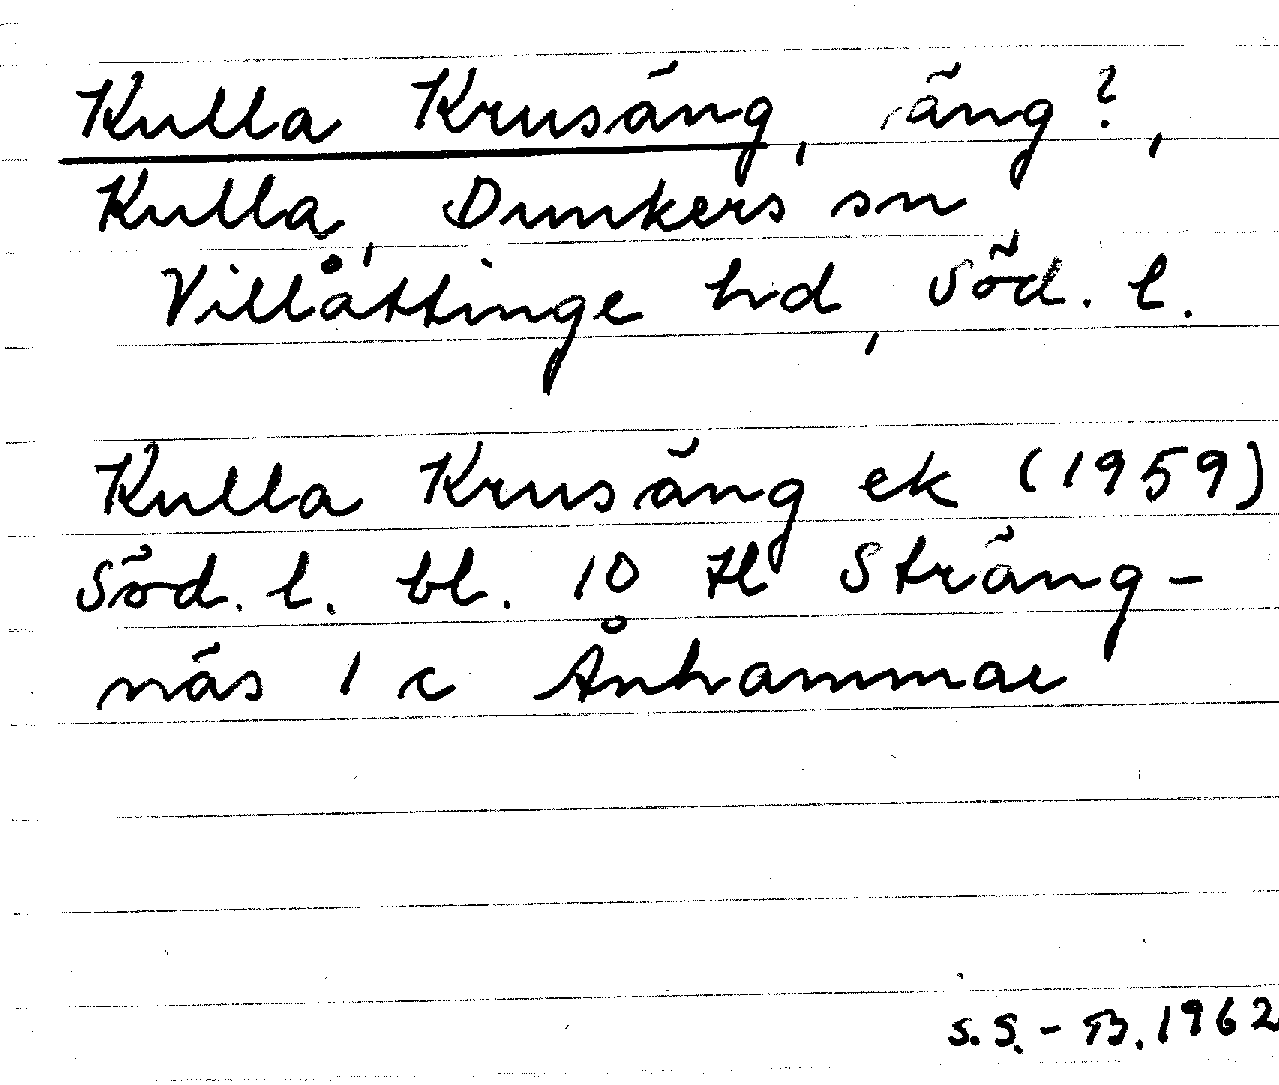 Kulla Krusäng, äng?,
Kulla, Dunkers sn
Villåttinge hd, Söd. l.
Kulla Krusäng ek (1959)
Söd. l. bl. 10 H Sträng-
näs 1 c Ånhammar
S.S.-B. 1962